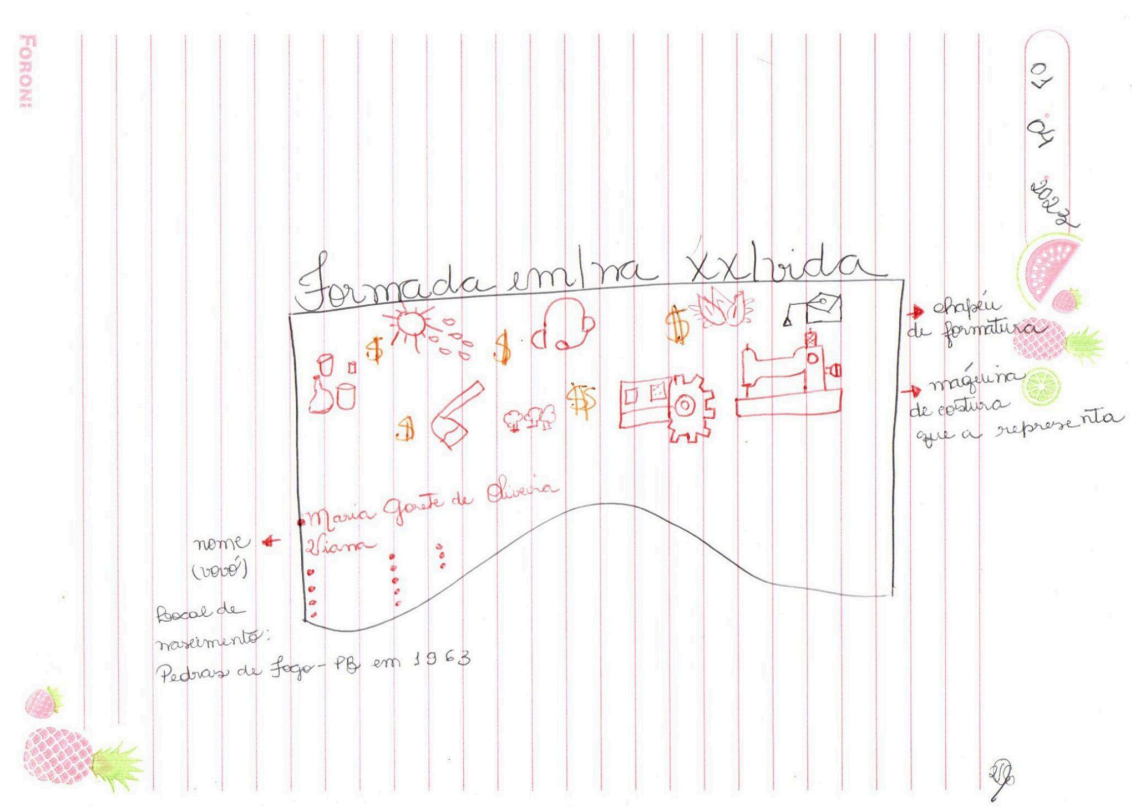 FORONI
01 04 2023
Formada em/na xx/vida
chapéu
de formatura
máquina
de costura
que a representa
$
$
$
$
$$
Maria Gorete de Oliveira
Viana
nome
(vovó)
Local de
nascimento:
Pedras de fogo - PB em 1963